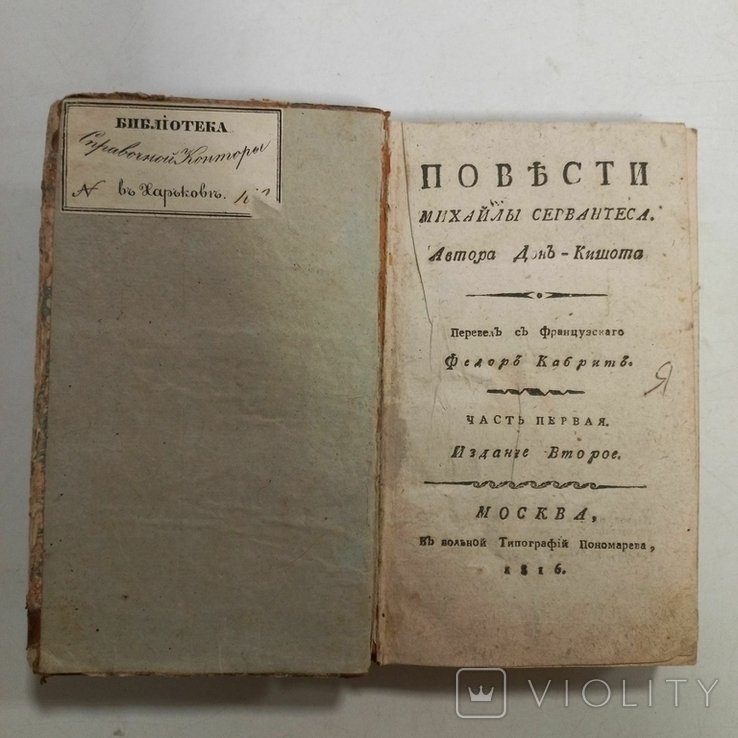 БИБЛІОТЕКА
Справочной Конторы
N въ Харьковѣ.
ПОВѢСТИ
МИХАЙЛЫ СЕРВАНТЕСА.
Автора Донъ-Кишота
Перевелъ съ Французскаго
Федоръ Кабритъ.
ЧАСТЬ ПЕРВАЯ.
Изданіе Второе.
МОСКВА,
Въ вольной Типографій Пономарева,
1816.
Я
VIOLITY